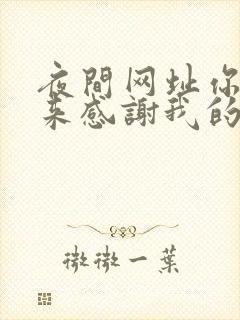 夜間网址你
来感謝我的
微微一葉